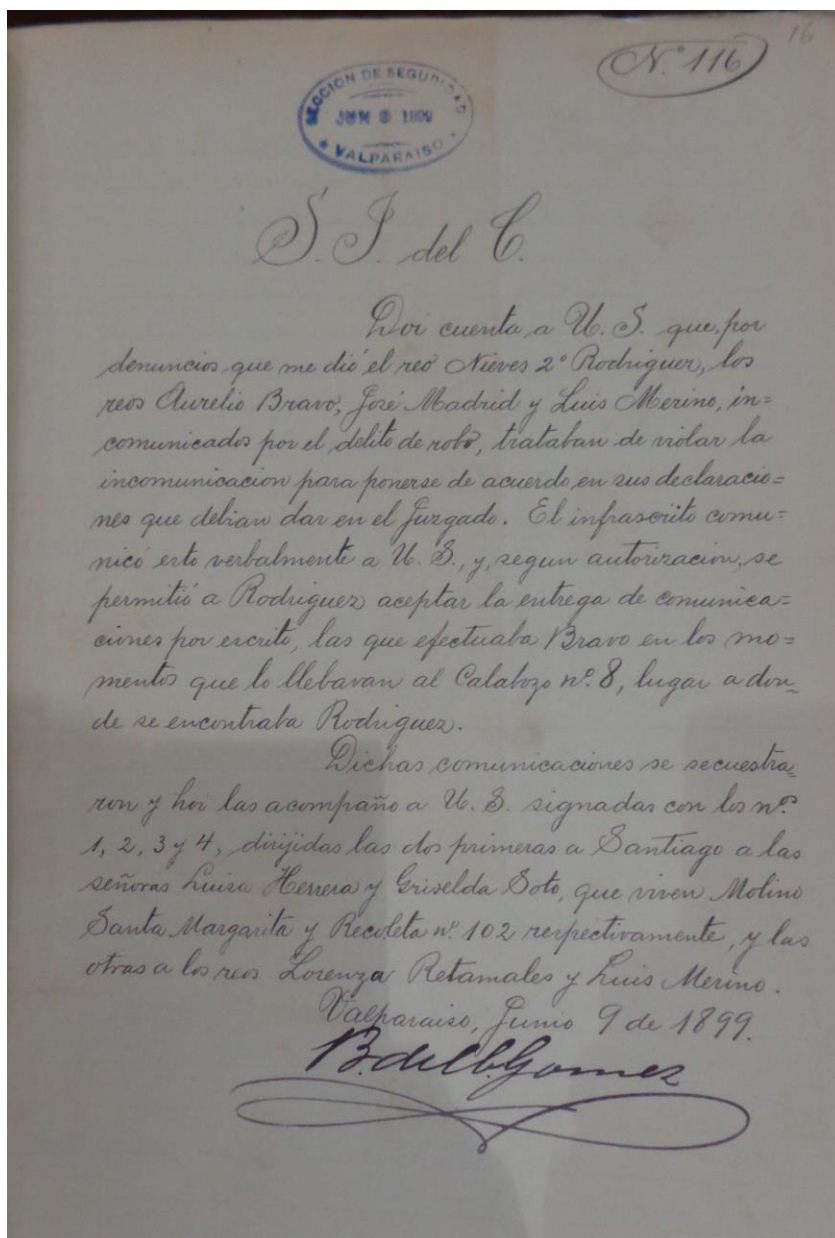 16
N.° 116
SECCION DE SEGURIDAD
JUN 9 1899
* VALPARAISO *
S. J. del C.
Doi cuenta a U. S. que, por
denuncios que me dió el reo Nieves 2° Rodriguez, los
reos Aurelio Bravo, José Madrid y Luis Merino, in=
comunicados por el delito de robo, trataban de violar la
incomunicacion para ponerse de acuerdo en sus declaracio=
nes que debian dar en el Juzgado. El infrascrito comu=
nicó esto verbalmente a U. S., y, segun autorizacion, se
permitió a Rodriguez aceptar la entrega de comunica=
ciones por escrito, las que efectuaba Bravo en los mo=
mentos que lo llebavan al Calabozo n.° 8, lugar a don_
de se encontraba Rodriguez.
Dichas comunicaciones se secuestra=
ron y hoi las acompaño a U. S. signadas con los n.os
1, 2, 3 y 4, dirijidas las dos primeras a Santiago a las
señoras Luisa Herrera y Griselda Soto, que viven Molino
Santa Margarita y Recoleta n.° 102 respectivamente, y las
otras a los reos Lorenza Retamales y Luis Merino.
Valparaiso, Junio 9 de 1899.
B. del C. Gomez